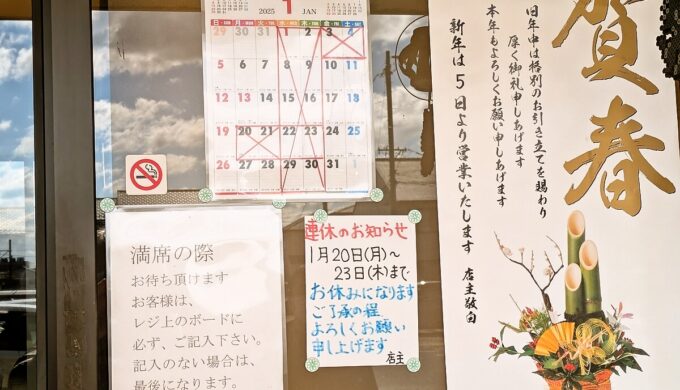 2025 1 JAN
日・SUN 月・MON 火・TUE 水・WED 木・THU 金・FRI 土・SAT
29 30 31 1 2 3 4
5 6 7 8 9 10 11
12 13 14 15 16 17 18
19 20 21 22 23 24 25
26 27 28 29 30 31
満席の際
お待ち頂けます
お客様は、
レジ上のボードに
必ず、ご記入下さい。
記入のない場合は、
最後になります。
連休のお知らせ
1月20日(月)～
23日(木)まで
お休みになります
ご了承の程
よろしくお願い
申し上げます
店主
賀春
旧年中は格別のお引き立てを賜わり
厚く御礼申しあげます
本年もよろしくお願い申しあげます
新年は5日より営業いたします
店主敬白